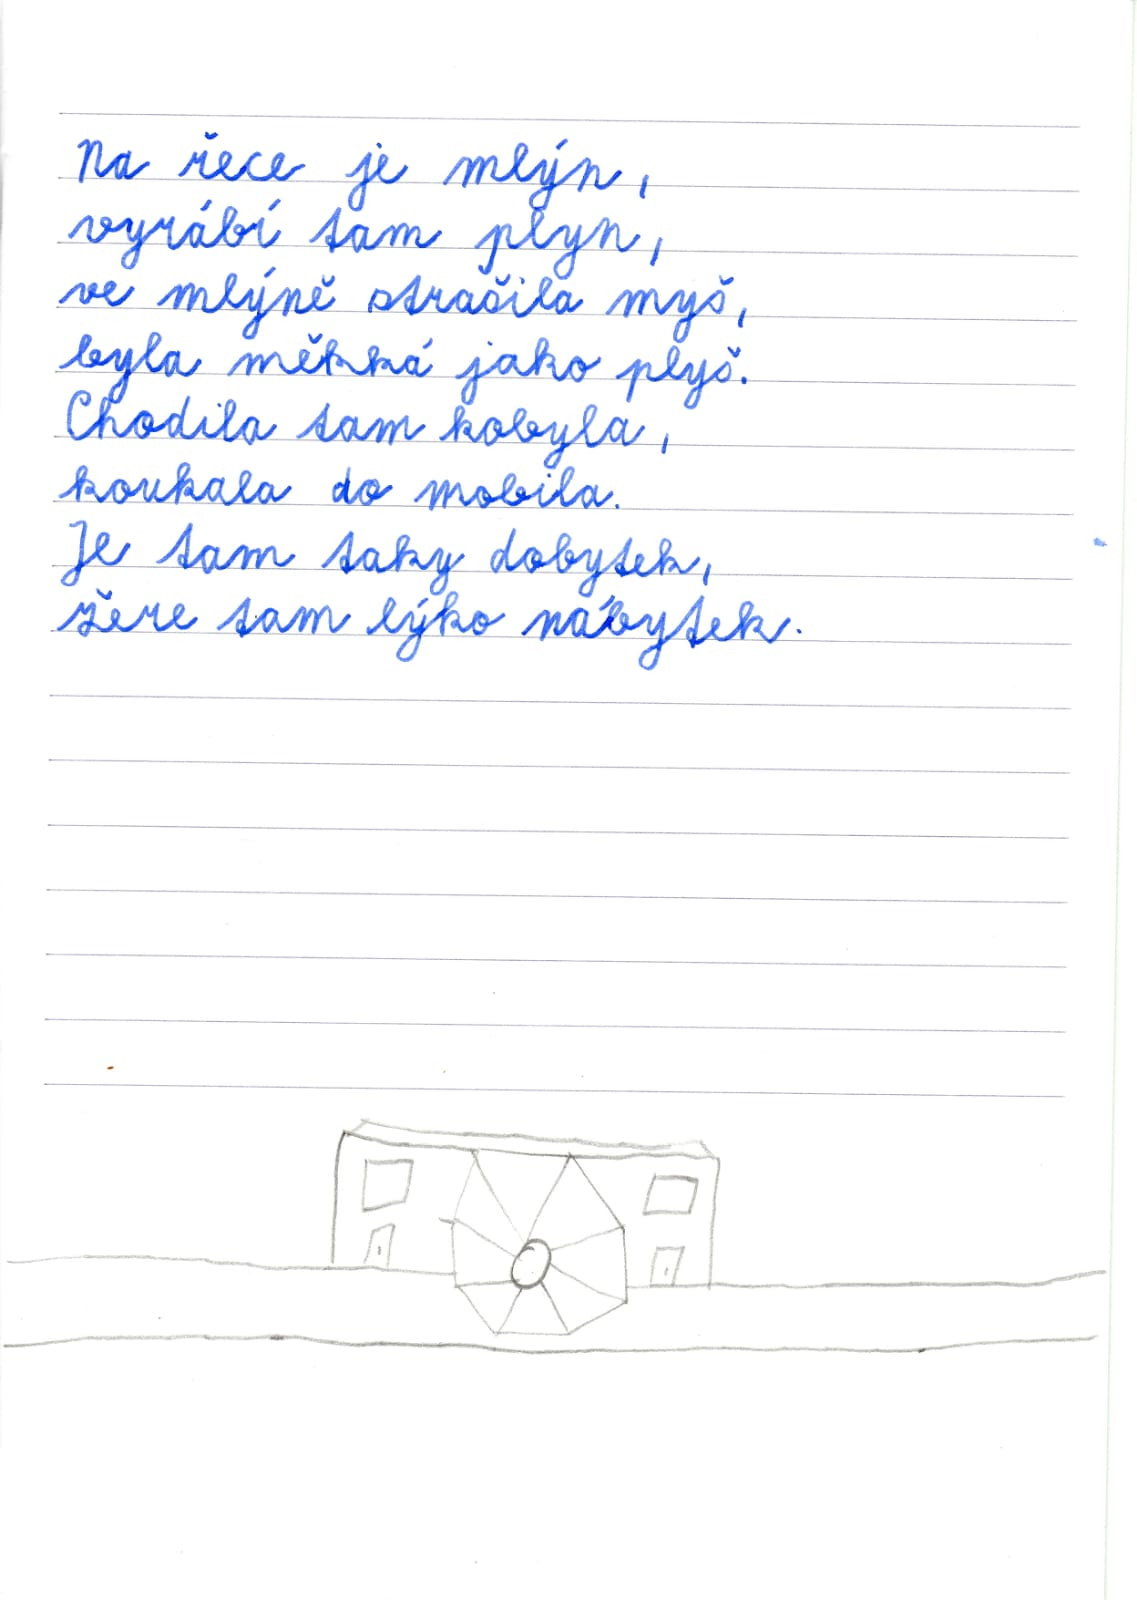 Na řece je mlýn,
vyrábí tam plyn,
ve mlýně strašila myš,
byla měkká jako plyš.
Chodila tam kobyla,
koukala do mobila.
Je tam taky dobytek,
žere tam lýko nábytek.